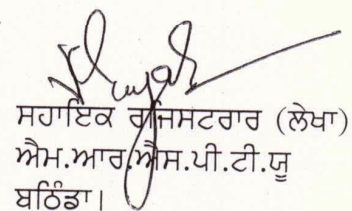 ਸਹਾਇਕ ਰਜਿਸਟਰਾਰ (ਲੇਖਾ)
ਐਮ.ਆਰ.ਐਸ.ਪੀ.ਟੀ.ਯੂ
ਬਠਿੰਡਾ।